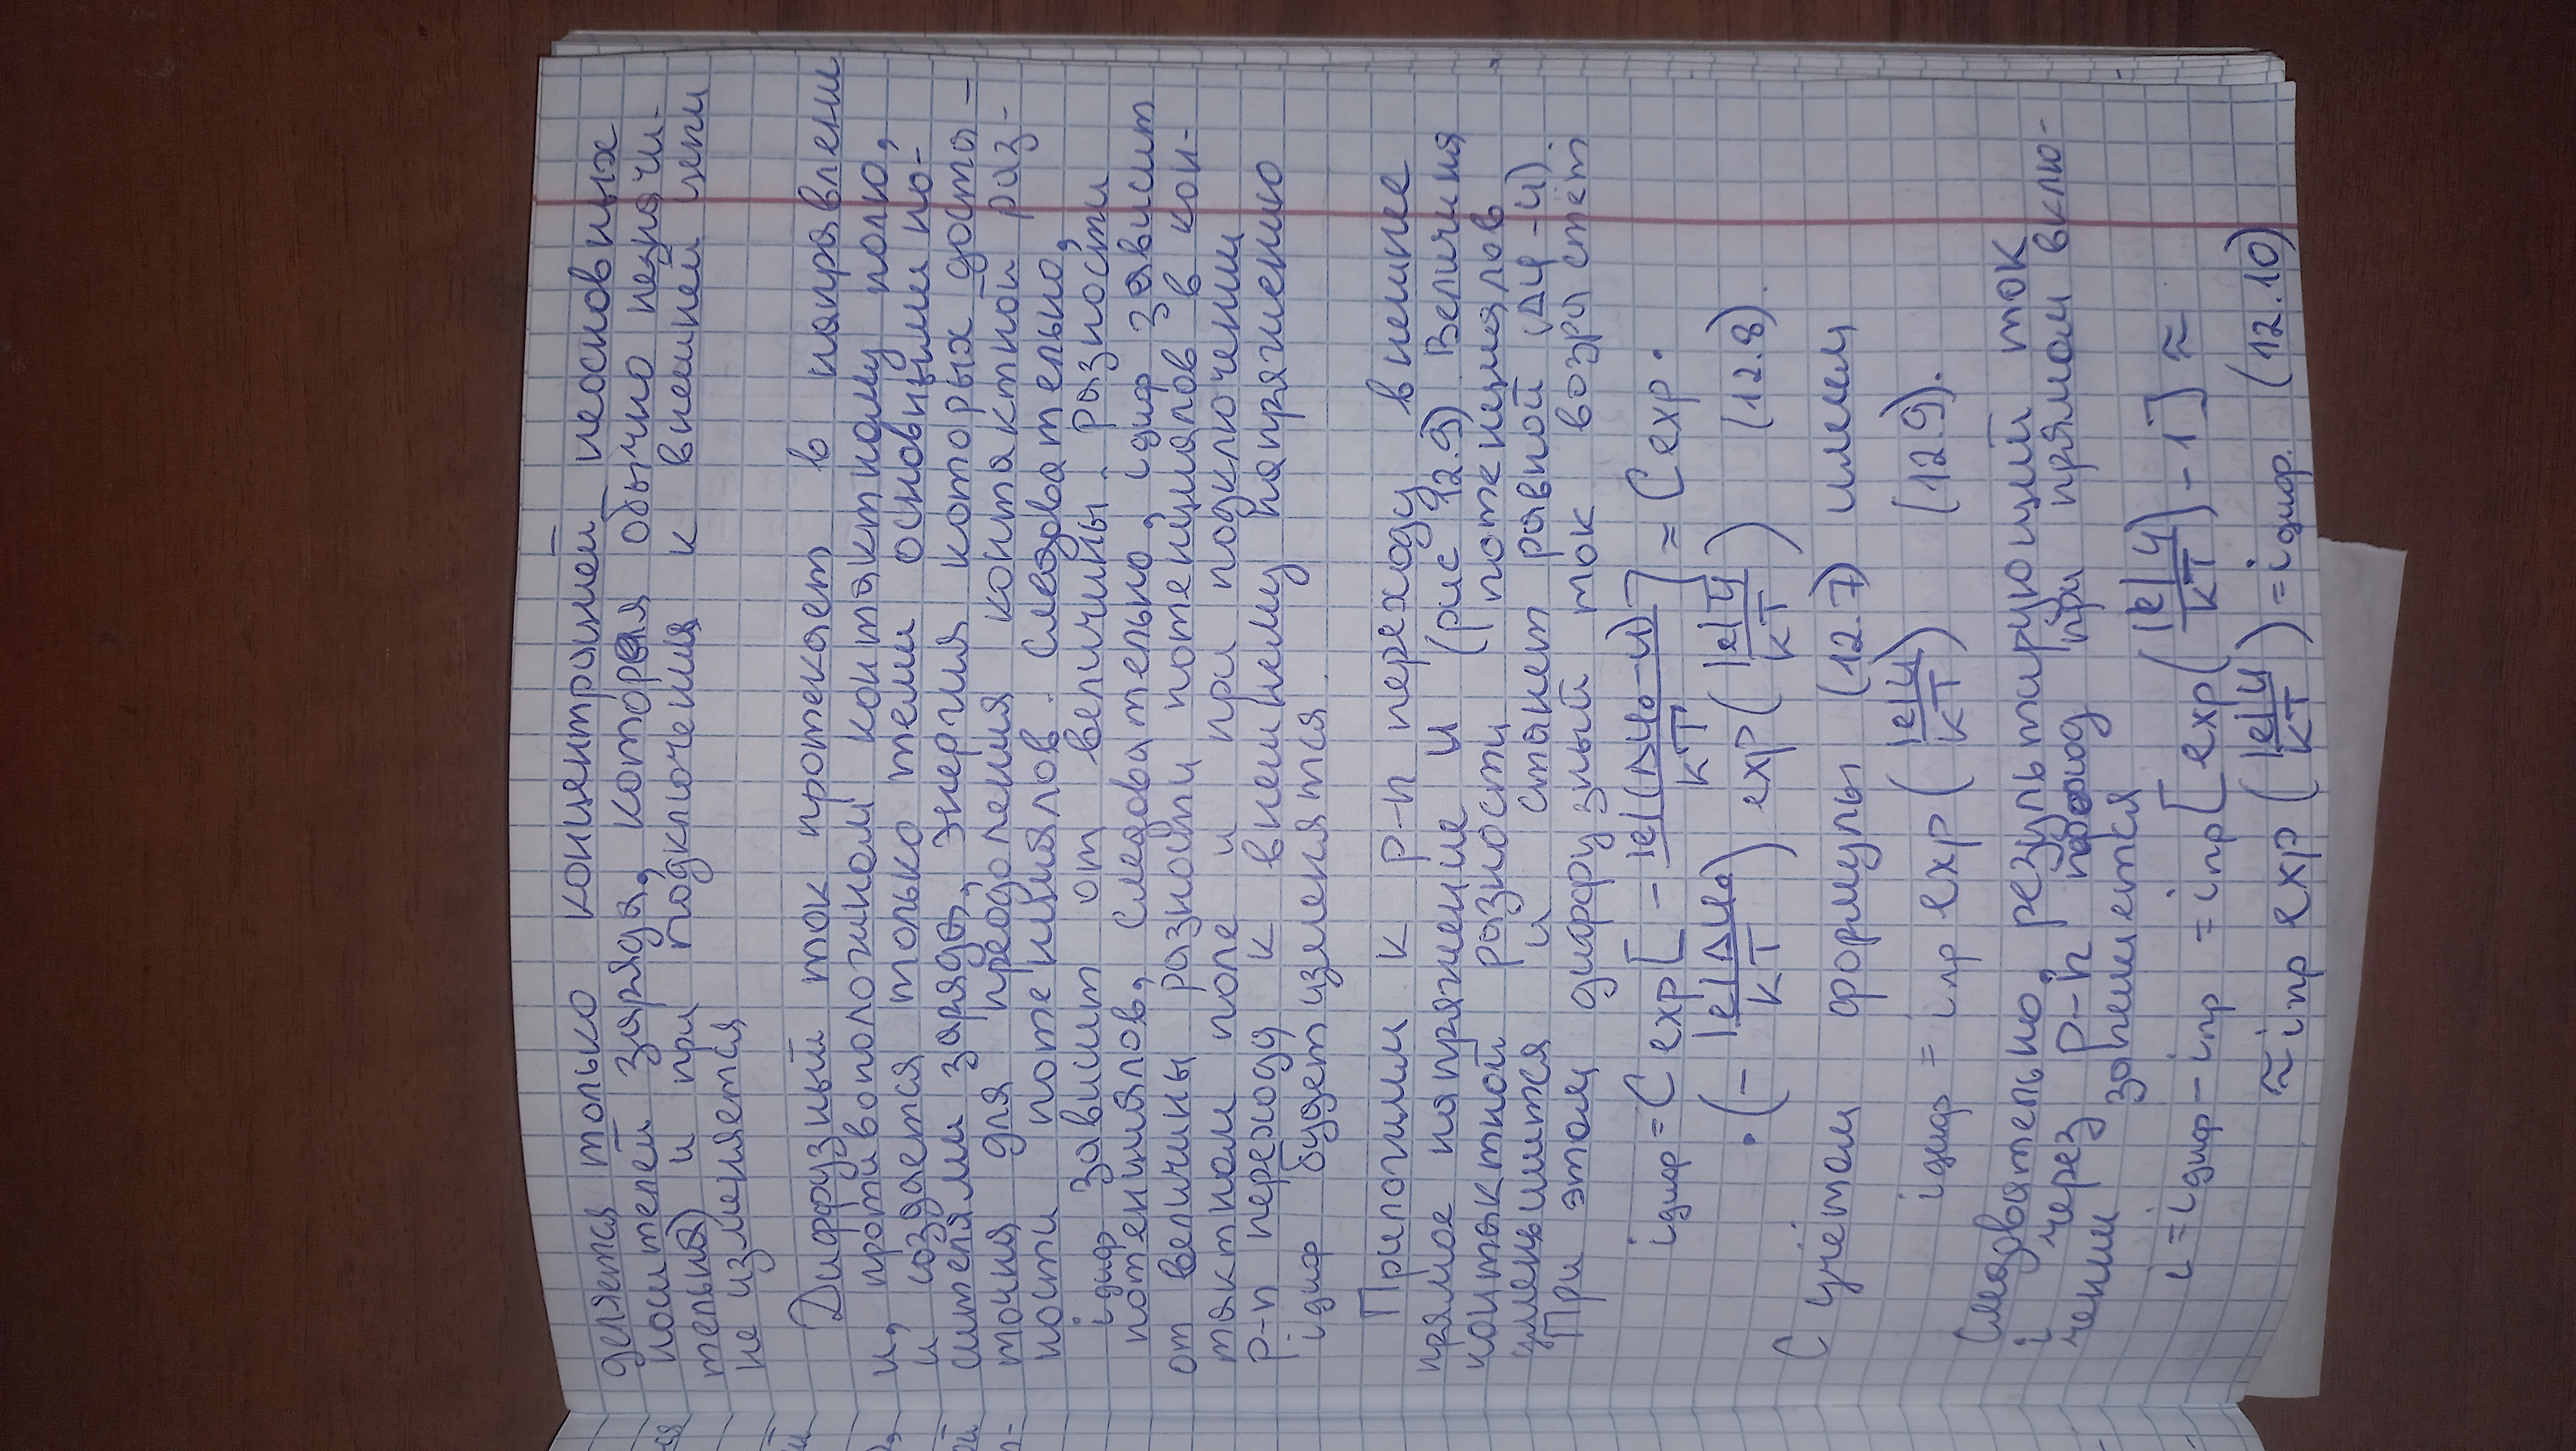 деляется только концентрацией неосновных
носителей заряда, которая обычно незначи-
тельна) и при подключения к внешней цепи
не изменяется
Диффузный ток протекает в направлени
и, противоположном контактному полю,
и создается только теми основными но-
сителями заряда, энергия которых доста-
точна для преодоления контактной раз-
ности потенциалов. Следовательно,
iдиф зависит от величины разности
потенциалов, следовательно, iдиф зависит
от величины разности потенциалов в кон-
тактном поле и при подключении
p-n перехода к внешнему напряжению
iдиф будет изменятся.
Приложим к p-n переходу внешнее
прямое напряжение U (рис 12.9) Величина
контактной разности потенциалов
уменьшится и станет равной (ΔU-U).
При этом диффузный ток возрастёт
iдиф = C exp[-|e|(ΔU₀-U)/kT] ≈ C exp·
·(-|e|ΔU₀/kT) exp(|e|U/kT) (12.8).
С учётом формулы (12.7) имеем
iдиф = iпр exp(|e|U/kT) (12.9).
Следовательно, результирующий ток
i через p-n переход при прямом вклю-
чении запишется
i = iдиф - iпр = iпр[exp(|e|U/kT) - 1] ≈
≈ iпр exp(|e|U/kT) = iдиф. (12.10)